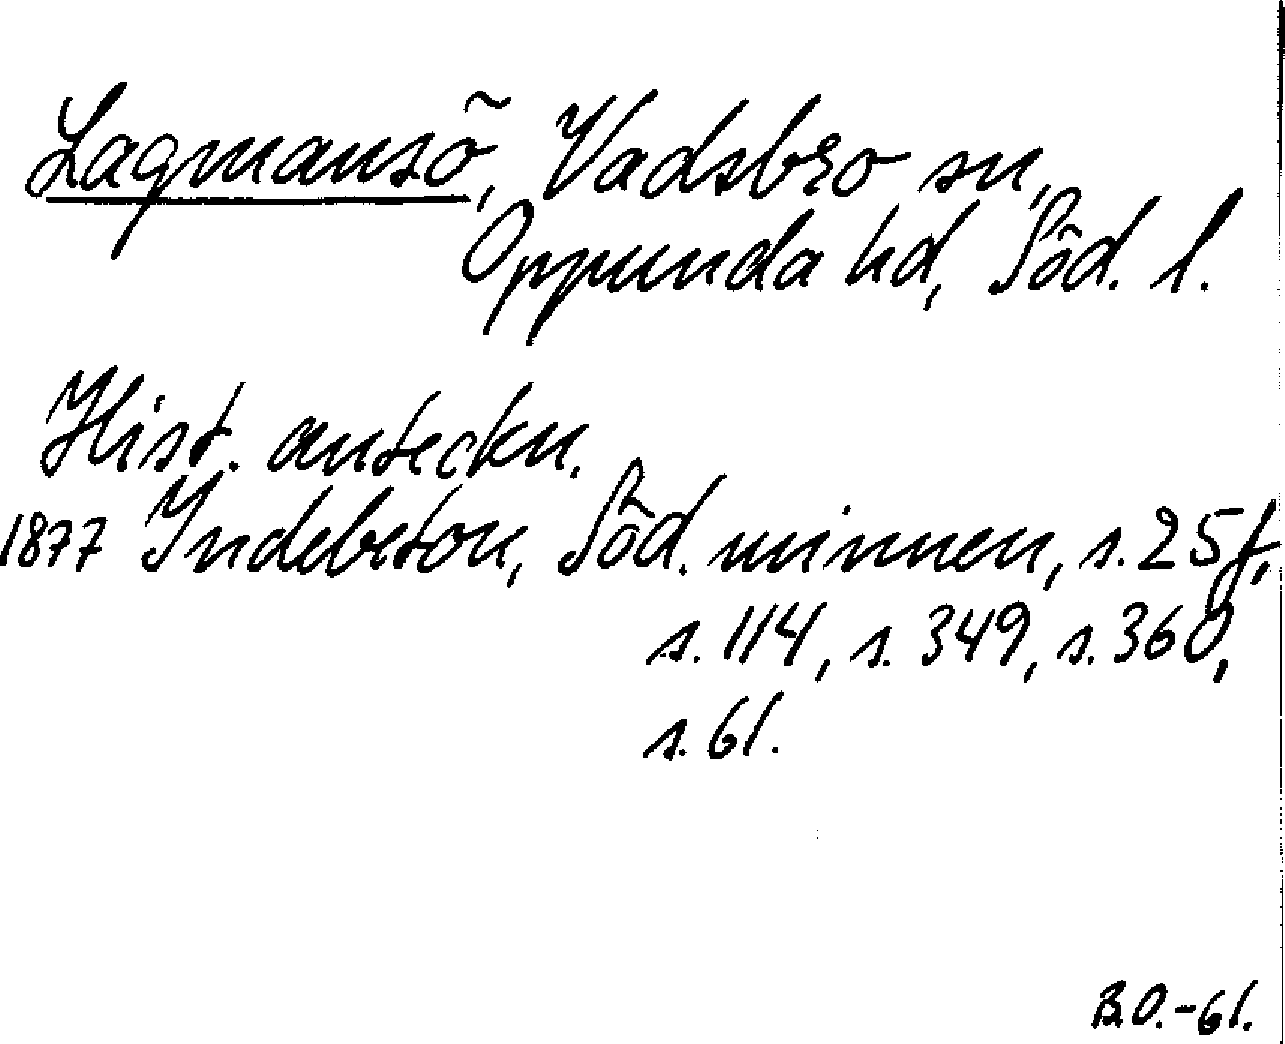 Lagmansö, Vadsbro sn,
Oppunda hd, Söd. l.
Hist. anteckn.
1877 Indebetou, Söd. minnen, s. 25 f,
s. 114, s. 349, s. 360,
s. 61.
B.O.-61.